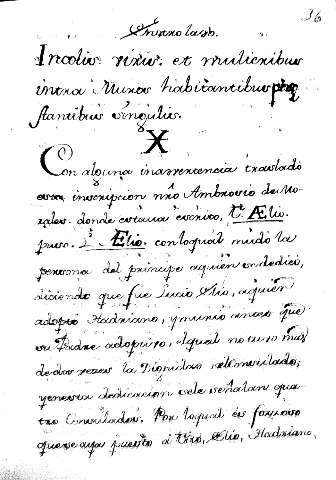 36
Incolis. viris. et mulieribus
intra Muros habitantibus præ
stantibus singulis.
X
Con alguna inavertencia traslado
esta inscripcion nřo Ambrosio de Mo
rales. donde estaua escrito, T. Ælio.
puso. L. Ælio. con loqual mudó la
persona del principe aquien se dedicó,
diciendo que fue Lucio Elio, aquien
adoptó Hadriano, y murio antes que
su Padre adoptiuo, elqual no tuvo mas
de dos vezes la Dignidad del Consulado;
y en esta dedicacion se le señalan qua
tro Consulados. Por loqual es forzoso
que se aya puesto a Tito, Elio, Hadriano,